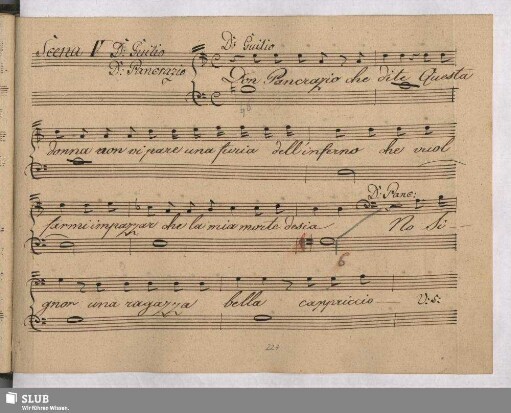 Scena V Dn. Guilio
Dn. Guilio
Dn. Pancrazio
Don Pancrazio che dite Questa
donna non vi pare una furia dell'inferno che vuol
farmi impazzar che la mia morte desia
Dn. Panc:
No Si-
6
gnor una ragazza bella cappriccio V: S:
224
SLUB
Wir führen Wissen.